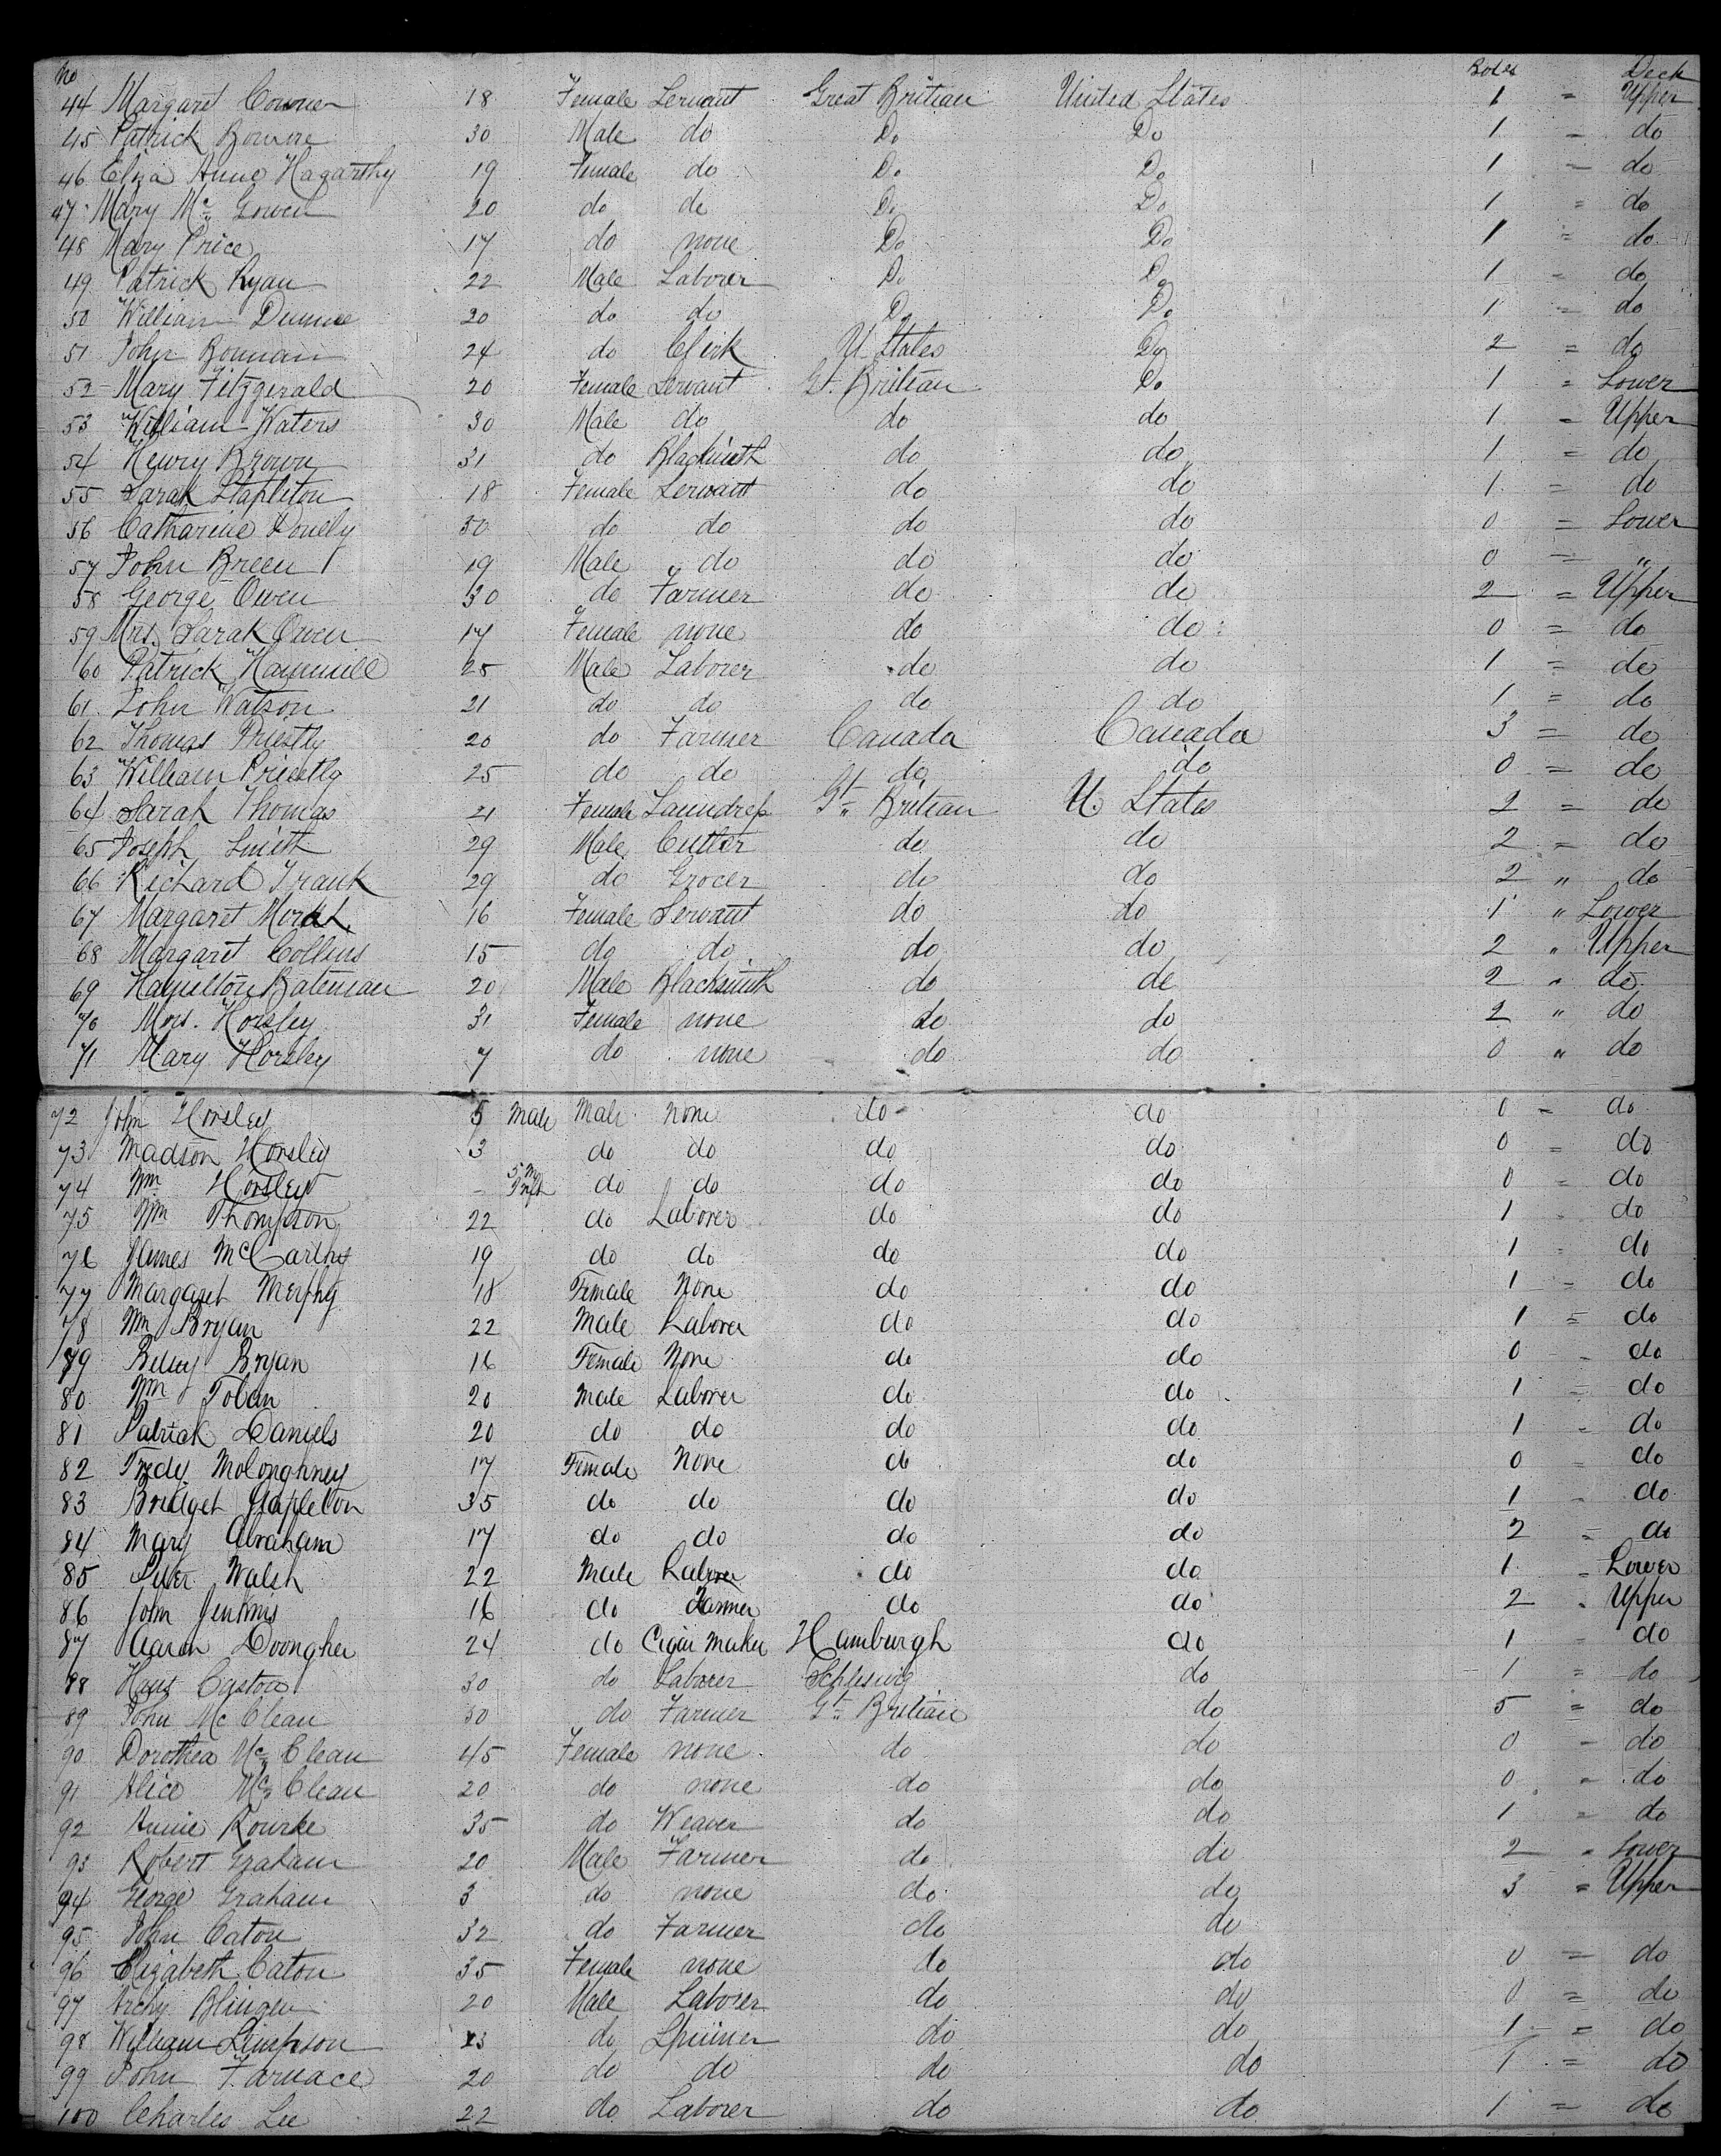 No Boxes Deck
44 Margaret Conner 18 Female Servant Great Britian United States 1 = Upper
45 Patrick Bowne 30 Male do Do Do 1 = do
46 Eliza Anne Hagarthy 19 Female do Do Do 1 = do
47 Mary Mc Gowen 20 do do Do Do 1 = do
48 Mary Price 17 do none Do Do 1 = do
49 Patrick Ryan 22 Male Laborer Do Do 1 = do
50 William Dunne 20 do do Do Do 1 = do
51 John Bouman 24 do Clerk U. States Do 2 = do
52 Mary Fitzgerald 20 Female Servant Gt. Britian Do 1 = Lower
53 William Waters 30 Male do do do 1 = Upper
54 Henry Brown 31 do Blacksmith do do 1 = do
55 Sarah Stapleton 18 Female Servant do do 1 = do
56 Catharine Donelly 30 do do do do 0 = Lower
57 John Breen 19 Male do do do 0 = "
58 George Owen 30 do Farmer do do 2 = Upper
59 Mrs. Sarah Owen 17 Female none do do 0 = do
60 Patrick Hammill 25 Male Laborer do do 1 = do
61 John Watson 21 do do do do 1 = do
62 Thomas Priestly 20 do Farmer Canada Canada 3 = do
63 William Priestly 25 do do do do 0 = do
64 Sarah Thomas 21 Female Laundress Gt Britian U States 2 = do
65 Joseph Smith 29 Male Cutler do do 2 = do
66 Richard Frank 29 do Grocer do do 2 " do
67 Margaret 16 Female Servant do do 1 " Lower
68 Margaret Collins 15 do do do do 2 " Upper
69 Hamilton Bateman 20 Male Blacksmith do do 2 " do
70 Mrs. Horsley 31 Female none do do 2 " do
71 Mary Horsley 7 do none do do 0 " do
72 John Horsley 5 Male Male none do do 0 = do
73 Madson Horsley 3 do do do do 0 = do
74 Wm Horsley - 5 Mo Inft do do do do 0 = do
75 Wm Thompson 22 do Laborer do do 1 - do
76 James McCarthy 19 do do do do 1 = do
77 Margaret Murphy 18 Female None do do 1 = do
78 Wm Bryan 22 Male Laborer do do 1 = do
79 Betsey Bryan 16 Female None do do 0 = do
80 Wm Tobin 20 Male Laborer do do 1 = do
81 Patrick Daniels 20 do do do do 1 = do
82 Moloughney 17 Female None do do 0 = do
83 Bridget Stapleton 35 do do do do 1 - do
84 Mary Abraham 17 do do do do 2 = do
85 Peter Walsh 22 Male Laborer do do 1 = Lower
86 John Jenkins 16 do Farmer do do 2 " Upper
87 Aaron Doongher 24 do Cigar Maker Hamburgh do 1 = do
88 Hans Caston 30 do Laborer Schleswig do 1 = do
89 John Mc Clean 50 do Farmer Gt Britian do 5 = do
90 Dorothea Mc Clean 45 Female none do do 0 = do
91 Alice Mc Clean 20 do none do do 0 = do
92 Annie Rourke 35 do Weaver do do 1 = do
93 Robert Graham 20 Male Farmer do do 2 = Lower
94 George Graham 3 do none do do 3 = Upper
95 John Caton 32 do Farmer do do
96 Elizabeth Caton 35 Female none do do 0 = do
97 Archy Blingen 20 Male Laborer do do 0 = do
98 William Simpson 23 do Spinner do do 1 = do
99 John Farnace 20 do do do do 1 = do
100 Charles Lee 22 do Laborer do do 1 = do